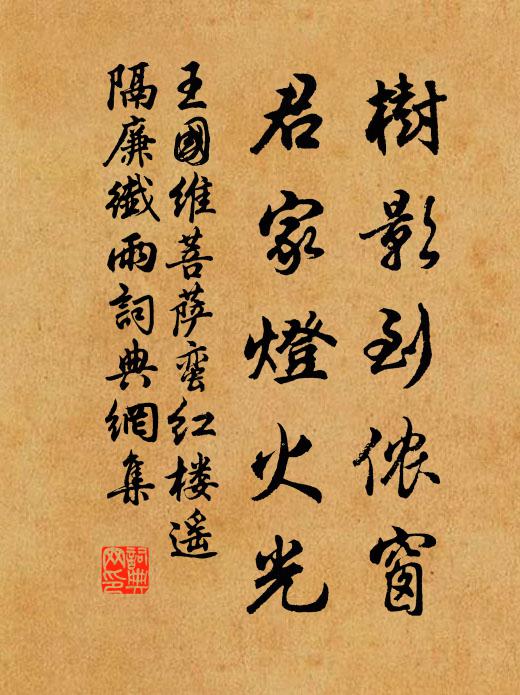 樹影到侬窗
君家燈火光
王國維菩萨蛮红楼遥
隔廉纖雨詞典網集
詞典網印